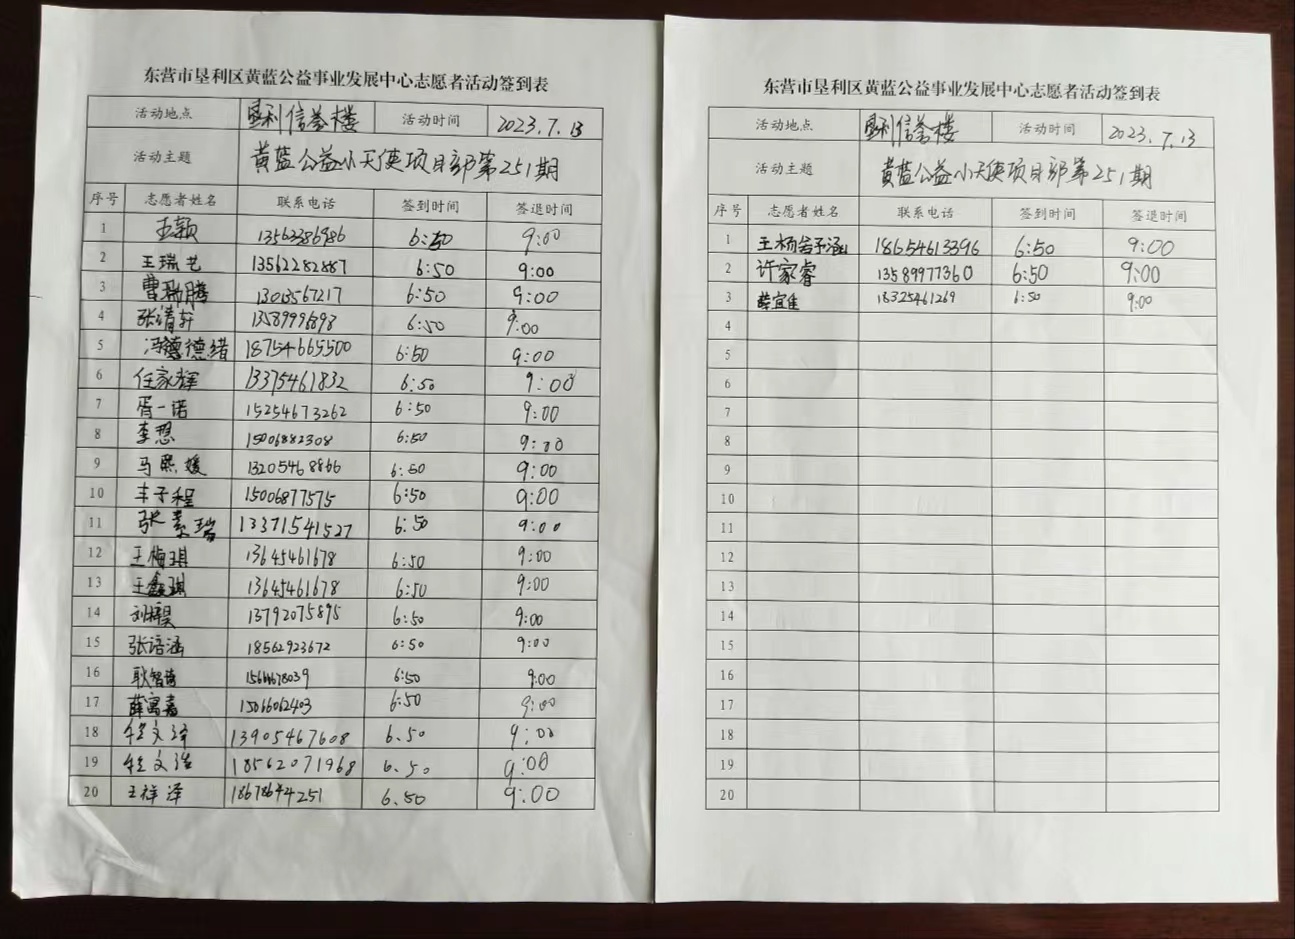 东营市垦利区黄蓝公益事业发展中心志愿者活动签到表
活动地点 垦利信誉楼 活动时间 2023.7.13
活动主题 黄蓝公益小天使项目部第251期
序号 志愿者姓名 联系电话 签到时间 签退时间
1 王颖 13563386986 6:50 9:00
2 王瑞艺 13562282887 6:50 9:00
3 曹瑞腾 13013567217 6:50 9:00
4 张靖轩 13589996898 6:50 9:00
5 冯德绪 18754665500 6:50 9:00
6 任家辉 13375461832 6:50 9:00
7 胥一诺 15254673262 6:50 9:00
8 李想 15006882308 6:50 9:00
9 马熙媛 13205468866 6:50 9:00
10 丰子程 15006877575 6:50 9:00
11 张素瑞 13371541527 6:50 9:00
12 王梅琪 13645461678 6:50 9:00
13 王鑫琪 13645461678 6:50 9:00
14 刘梓昊 13792075895 6:50 9:00
15 张语涵 18562923672 6:50 9:00
16 耿智 6:50 9:00
17 薛富嘉 15066062403 6:50 9:00
18 文泽 13905467608 6.50 9:00
19 文 18562071968 6.50 9:00
20 王祥泽 18678644251 6.50 9:00
东营市垦利区黄蓝公益事业发展中心志愿者活动签到表
活动地点 垦利信誉楼 活动时间 2023.7.13
活动主题 黄蓝公益小天使项目部第251期
序号 志愿者姓名 联系电话 签到时间 签退时间
1 王杨若予涵 18654613396 6:50 9:00
2 许家睿 13589977360 6:50 9:00
3 薛宜佳 18325461269 6:50 9:00
4
5
6
7
8
9
10
11
12
13
14
15
16
17
18
19
20